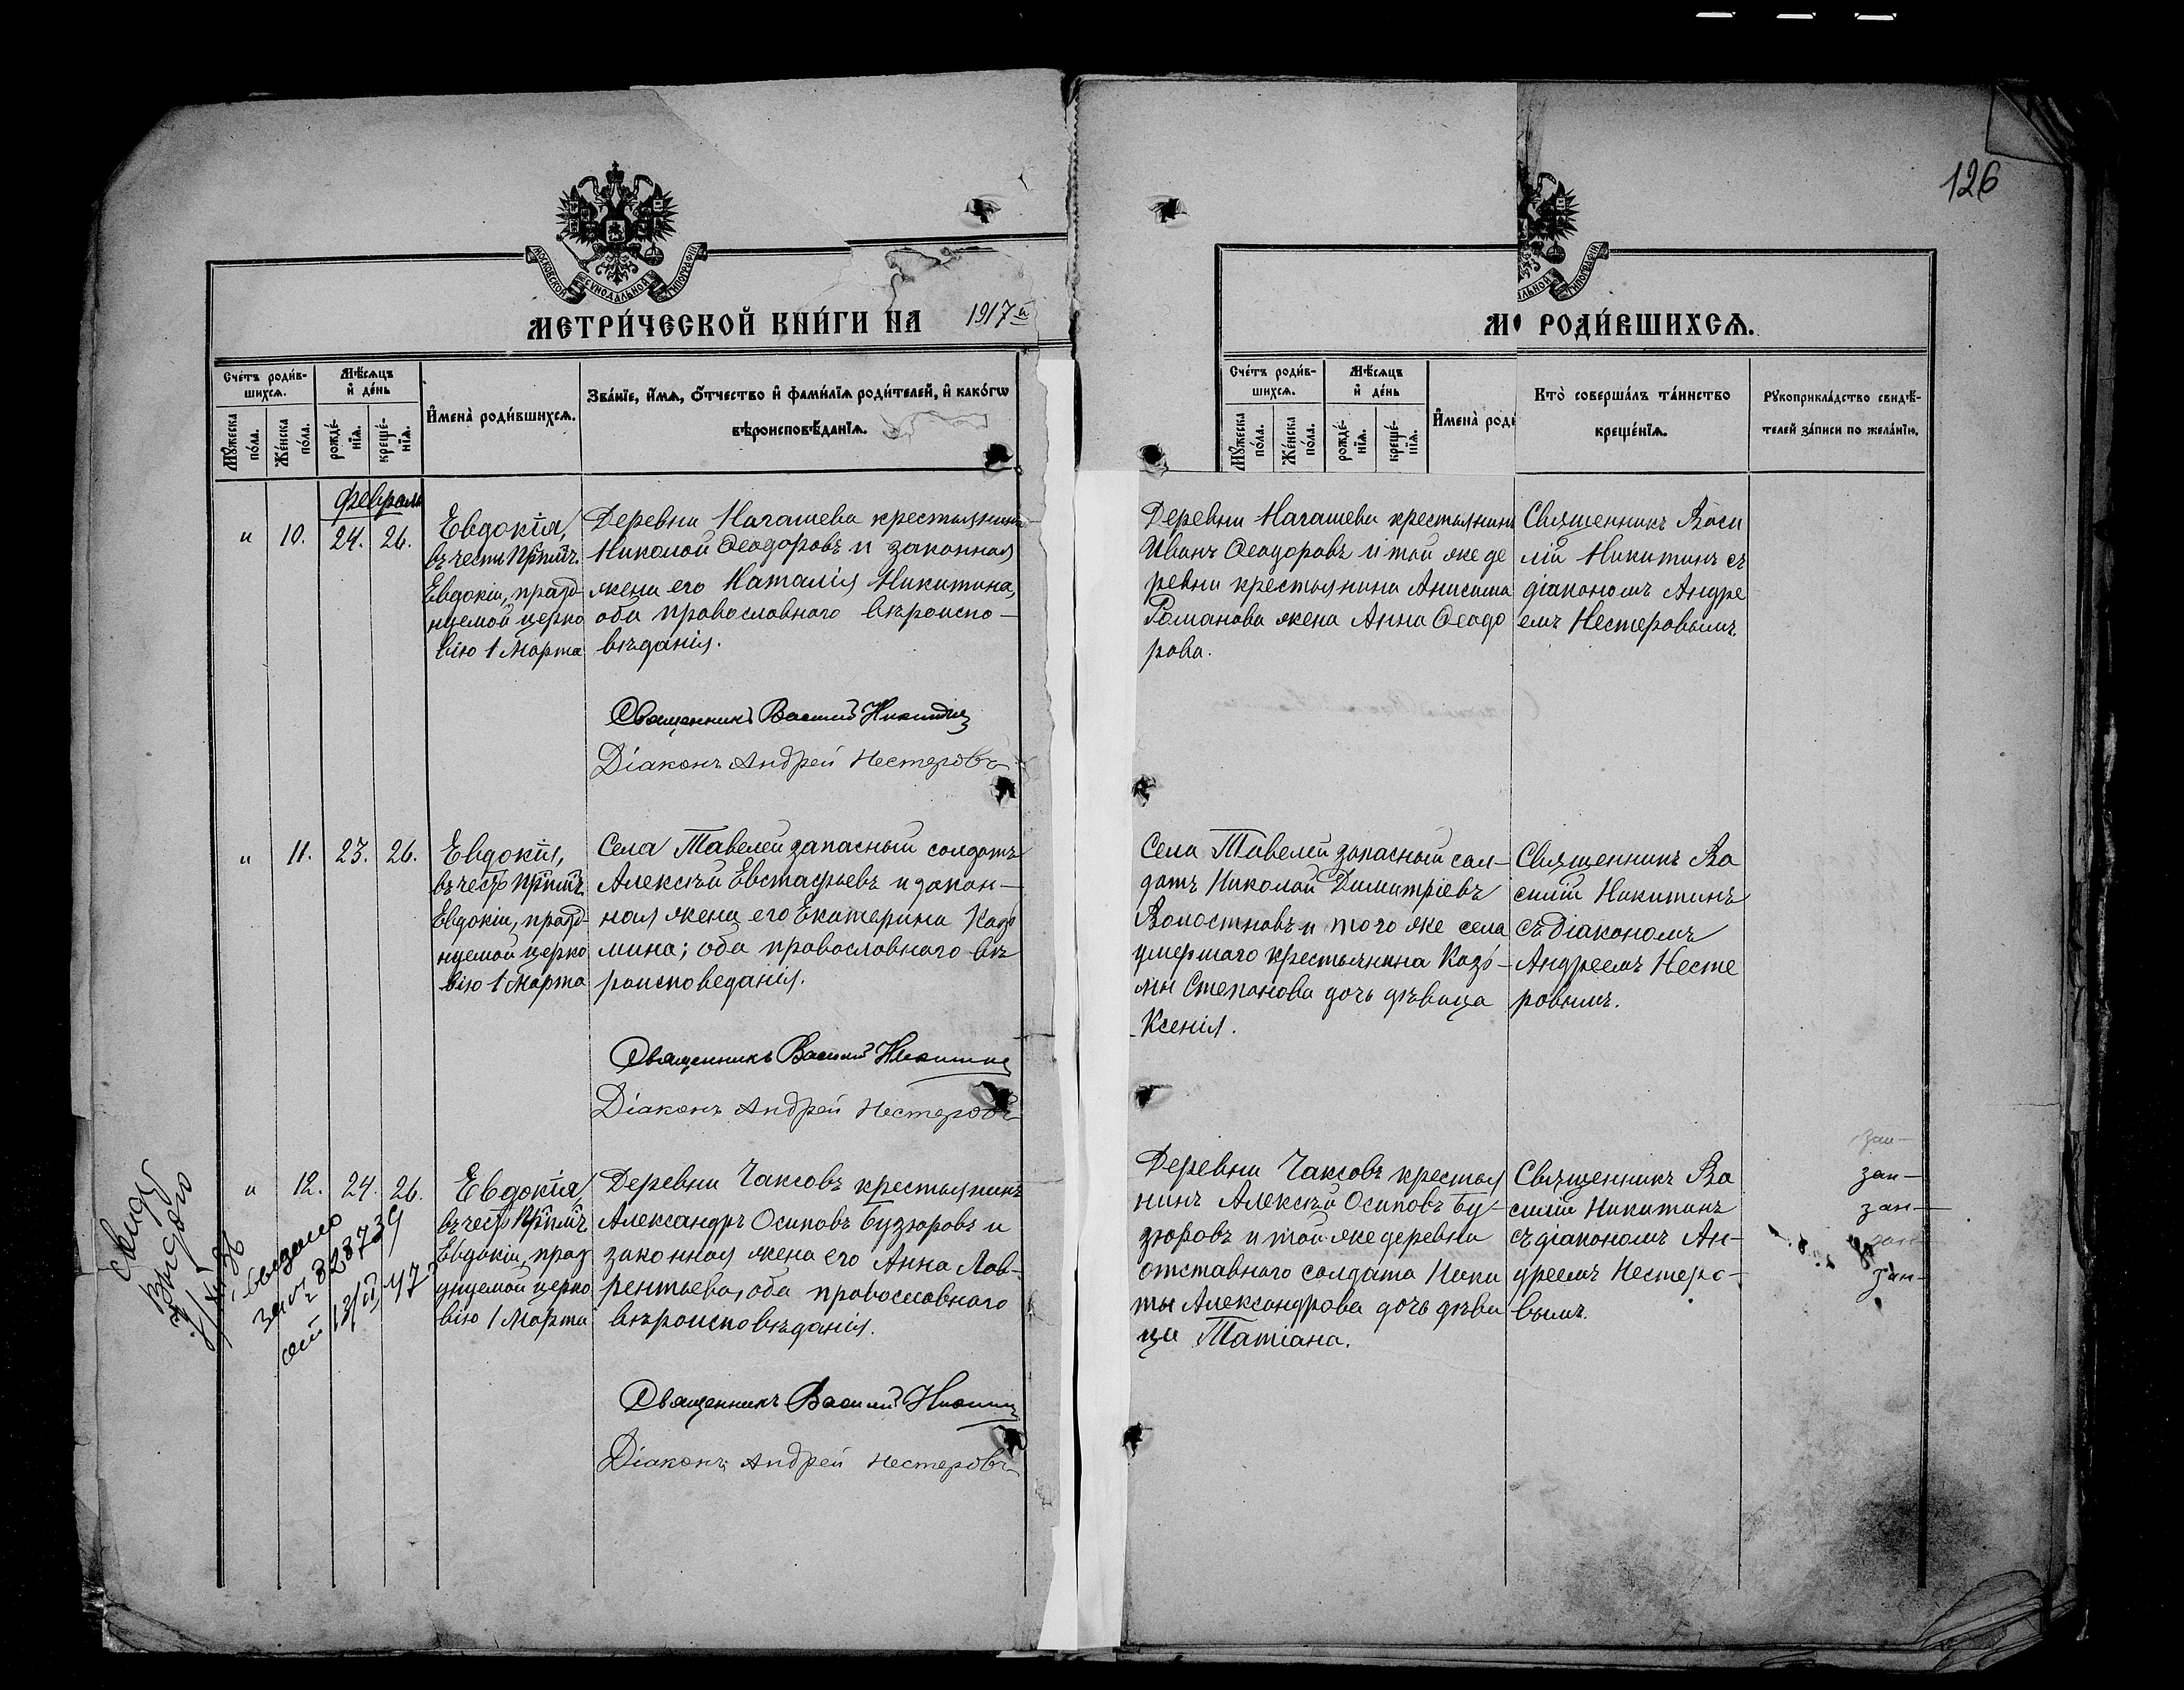 126
МОСКОВСКОЙ СѴНОДАЛЬНОЙ ТИПОГРАФІИ
МЕТРИ́ЧЕСКОЙ КНИ́ГИ НА 1917й
Сче́тъ роди́в-
шихсѧ.
Мѣ́сѧцъ
и҆ де́нь
Мꙋ́жеска по́ла.
Же́нска по́ла.
рожде́-нїѧ.
креще́-нїѧ.
И҆мена̀ роди́вшихсѧ.
Зва́нїе, и҆́мѧ, ѻ҆́тчество и҆ фами́лїѧ роди́телей, и҆ како́гѡ
вѣроисповѣ́данїѧ.
Февраль
и 10. 24. 26.
Евдокія,
въ честь Прпмч.
Евдокіи, празд-
нуемой церко
вію 1 Марта
Деревни Начашева крестьянинъ
Николай Ѳеодоровъ и законная
жена его Наталія Никитина,
оба православного вѣроиспо-
вѣданія.
Священникъ Василій Никитинъ
Діаконъ Андрей Нестеровъ
и 11. 23. 26.
Евдокія,
въ честь Прпмч.
Евдокіи, празд-
нуемой церко
вію 1 Марта
Села Тавелей запасный солдатъ
Алексѣй Евстафьевъ и закон-
ная жена его Екатерина Козь
мина; оба православного вѣ
роисповеданія.
Священникъ Василій Никитинъ
Діаконъ Андрей Нестеровъ
и 12. 24. 26.
Евдокія,
въ честь Прпмч.
Евдокіи, празд
нуемой церко
вію 1 Марта
Деревни Чаксовъ крестьянинъ
Александръ Осиповъ Бузюровъ и
законная жена его Анна Лав-
рентьева, оба православного
вѣроисповѣданія.
Священникъ Василій Никитинъ
Діаконъ Андрей Нестеровъ
РОДИ́ВШИХСѦ.
Сче́тъ роди́в-
шихсѧ.
Мѣ́сѧцъ
и҆ де́нь
Мꙋ́жеска по́ла.
Же́нска по́ла.
рожде́-нїѧ.
креще́-нїѧ.
И҆мена̀
Кто̀ соверша́лъ та́инство
креще́нїѧ.
Рꙋкоприкла́дство свидѣ́-
телей за́писи по жела́нїю.
Деревни Начашева крестьянинъ
Иванъ Ѳеодоровъ и той же де
ревни крестьянина Анисима
Романова жена Анна Ѳеодо
рова.
Священникъ Васи
лій Никитинъ съ
діакономъ Андре
емъ Нестеровымъ.
Села Тавелей запасный сол-
датъ Николай Димитріевъ
и того же села
умершаго крестьянина Козь-
мы Степанова дочь дѣвица
Ксенія.
Священникъ Ва
силій Никитинъ
съ діакономъ
Андреемъ Несте
ровымъ.
Деревни Чаксовъ крестья
нинъ Алексѣй Осиповъ Бу-
зюровъ и той же деревни
отставного солдата Ники
ты Александрова дочь дѣви
ца Татіана.
Священникъ Ва
силій Никитинъ
съ діакономъ Ан-
дреемъ Нестеро-
вымъ.